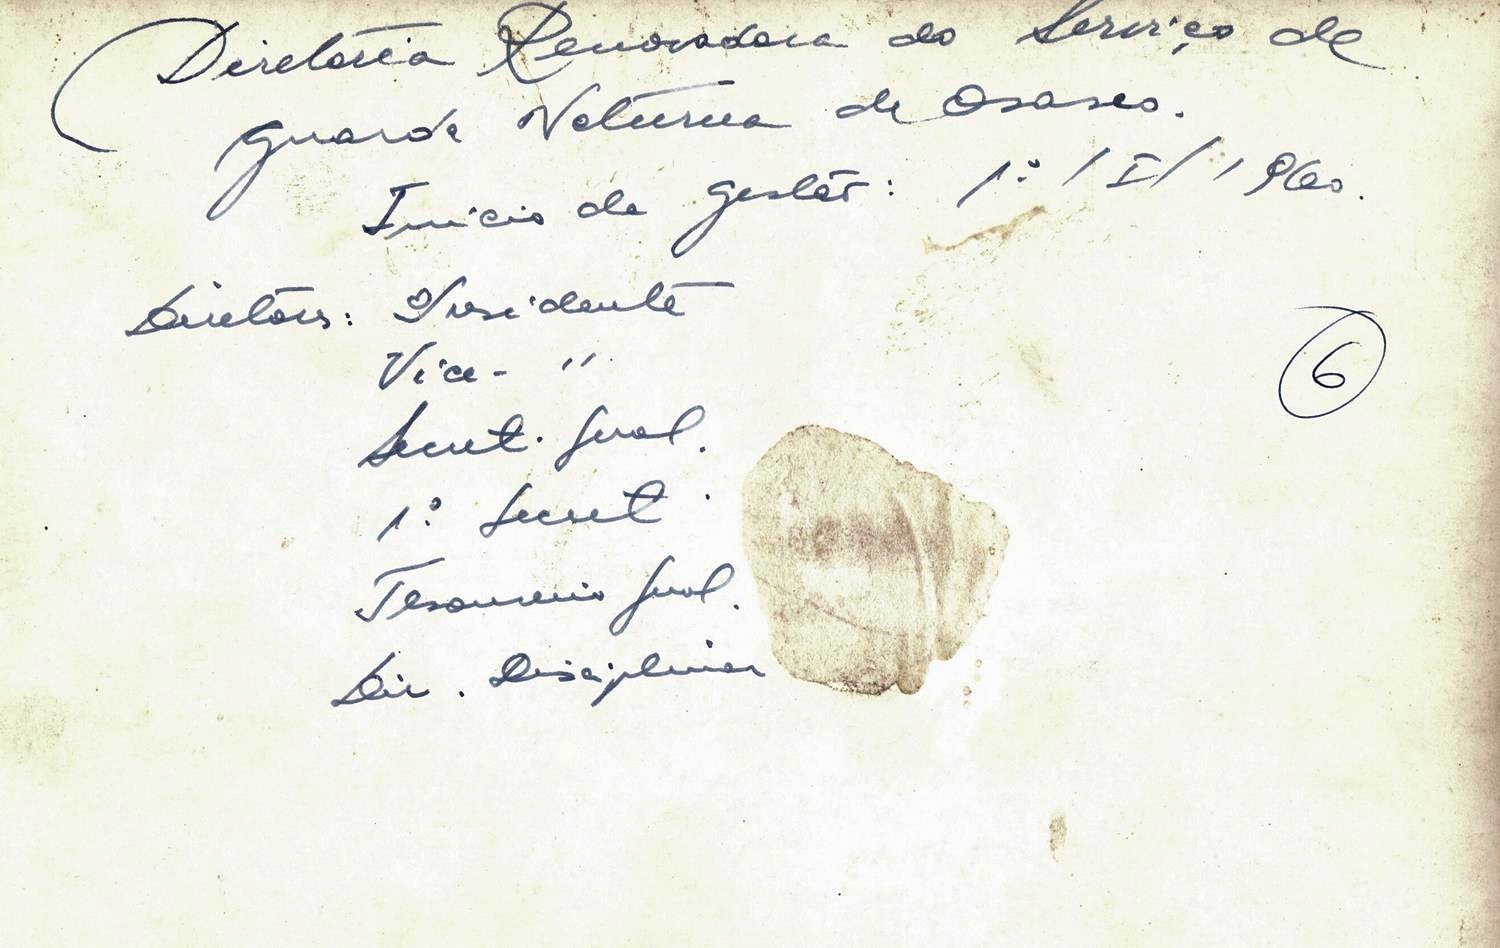 Diretoria Renovadora do Serviço de
Guarda Noturna de Osasco.
Inicio da gestão: 1º / I / 1960.
Diretores: Presidente
Vice- "
Secret. Geral.
1º Secret.
Tesoureiro Geral.
Dir. Disciplinar
6